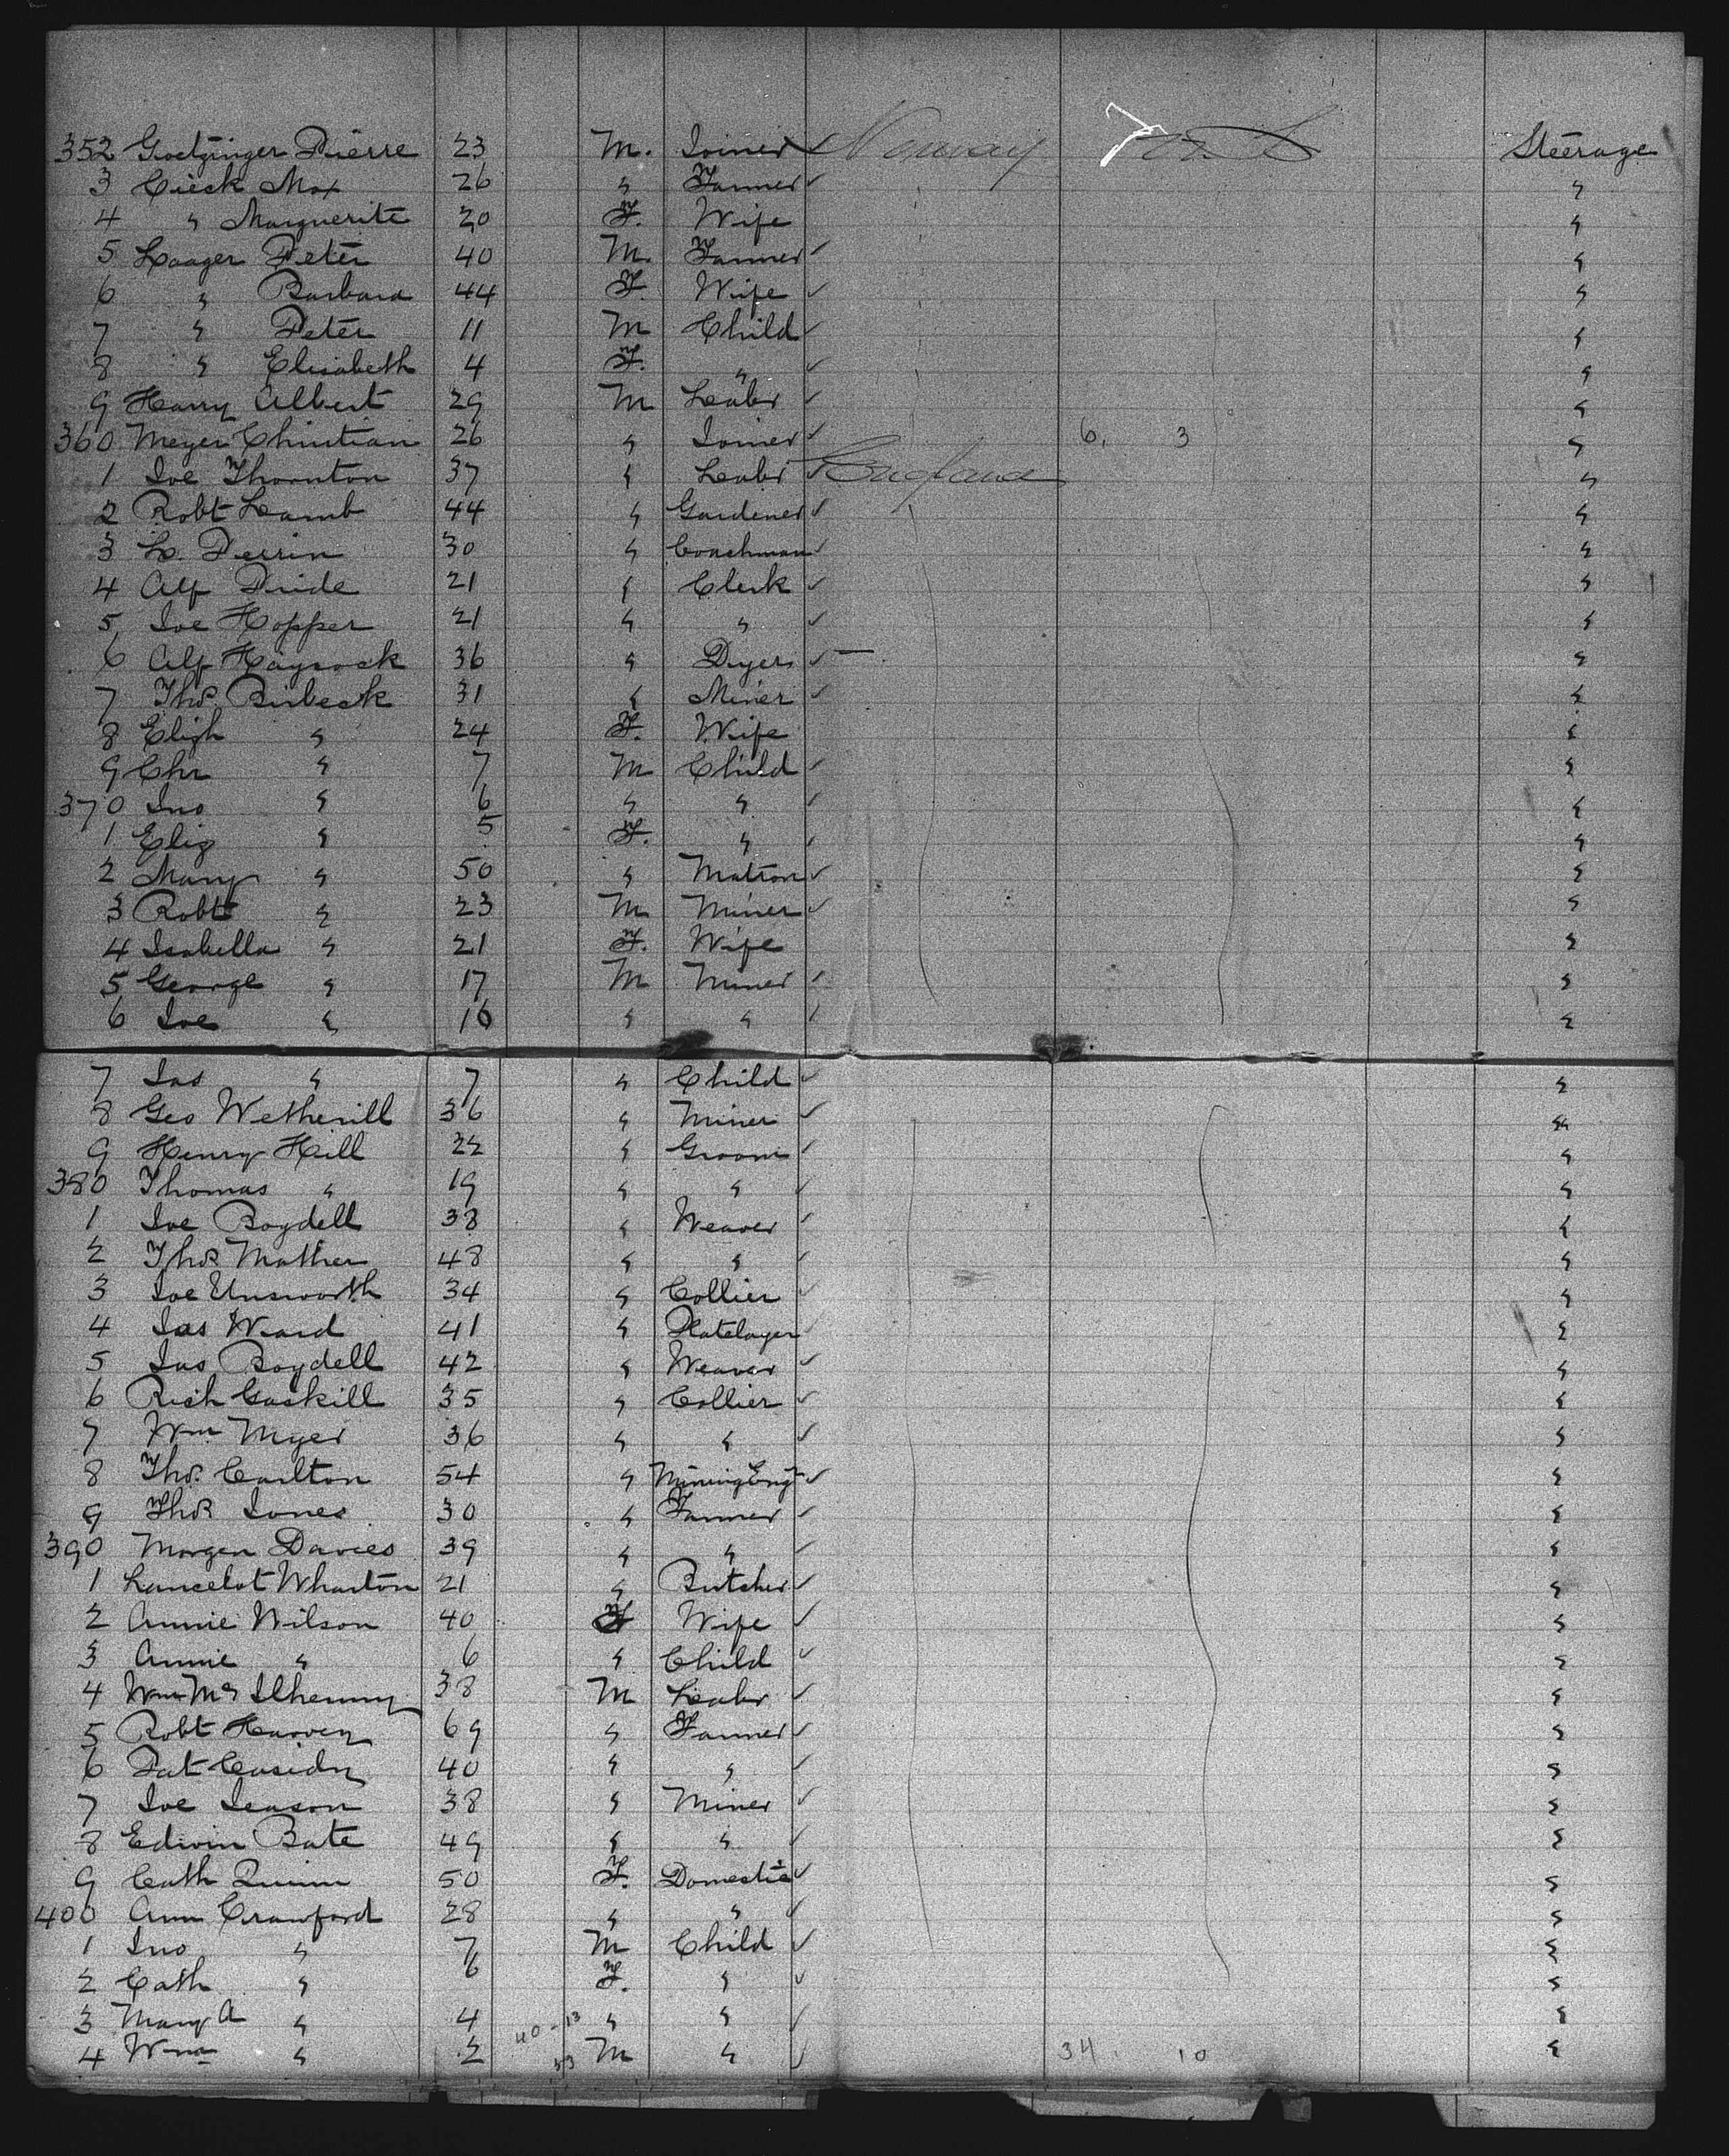 352 Goetzinger Pierre 23 M. Joiner ✓ Norway U.S. Steerage
3 Cieck Max 26 " Farmer ✓ "
4 " Marguerite 20 F. Wife "
5 Laager Peter 40 M. Farmer ✓ "
6 " Barbara 44 F. Wife ✓ "
7 " Peter 11 M Child ✓ "
8 " Elisabeth 4 F. " ✓ "
9 Harry Albert 29 M Labr ✓ "
360 Meyer Christian 26 " Joiner ✓ 6. 3 "
1 Joe Thornton 37 " Labr ✓ England "
2 Robt Lamb 44 " Gardener ✓ "
3 L. Perrin 30 " Coachman ✓ "
4 Alf Pride 21 " Clerk ✓ "
5 Joe Hopper 21 " " ✓ "
6 Alf Haycock 36 " Dyer ✓ — "
7 Thos. Birbeck 31 " Miner ✓ "
8 Elizh " 24 F. Wife "
9 Chr " 7 M Child ✓ "
370 Jno " 6 " " ✓ "
1 Eliz " 5 F. " ✓ "
2 Mary " 50 " Matron ✓ "
3 Robt " 23 M Miner ✓ "
4 Isabella " 21 F. Wife "
5 George " 17 M Miner ✓ "
6 Joe " 16 " " ✓ "
7 Jas " 7 " Child ✓ "
8 Geo Wetherill 36 " Miner ✓ "
9 Henry Hill 22 " Groom ✓ "
380 Thomas " 19 " " ✓ "
1 Joe Boydell 38 " Weaver ✓ "
2 Thos Mather 48 " " ✓ "
3 Joe Unsworth 34 " Collier ✓ "
4 Jas Ward 41 " Platelayer "
5 Jas Boydell 42 " Weaver ✓ "
6 Rich Gaskill 35 " Collier ✓ "
7 Wm Myer 36 " " ✓ "
8 Thos. Carlton 54 " Mining Engr ✓ "
9 Thos Jones 30 " Farmer ✓ "
390 Morgen Davies 39 " " ✓ "
1 Lancelot Wharton 21 " Butcher ✓ "
2 Annie Wilson 40 F Wife ✓ "
3 Annie " 6 " Child ✓ "
4 Wm Mc Ilhenny 38 M Labr ✓ "
5 Robt Harvey 69 " Farmer ✓ "
6 Pat Casidy 40 " " ✓ "
7 Joe Leason 38 " Miner ✓ "
8 Edwin Bate 49 " " ✓ "
9 Cath Quinn 50 F. Domestic ✓ "
400 Ann Crawford 28 " " ✓ "
1 Jno " 7 M Child ✓ "
2 Cath " 6 F. " ✓ "
3 Mary A " 4 40-13 " " ✓ "
4 Wm " 2 53 M " ✓ 34. 10 "